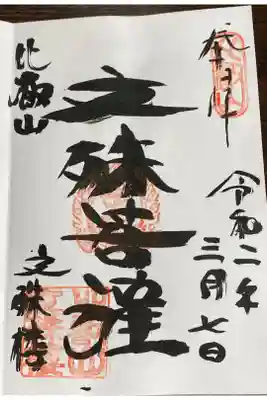 奉拝
令和二年
三月七日
文殊菩薩
比叡山
文殊楼